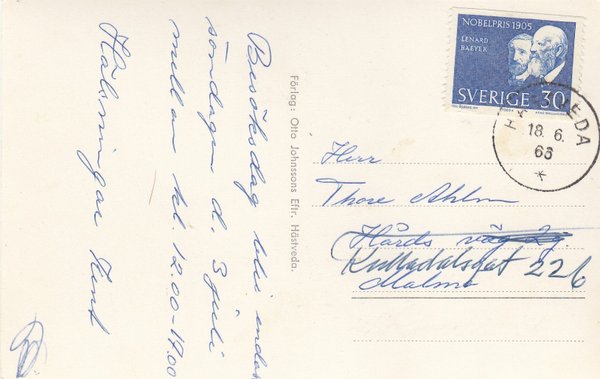 Besöksdag blir endast
söndagen d. 3 juli
mellan kl. 12.00-17.00
Hälsningar Kent
Förlag: Otto Johnssons Eftr. Hästveda.
NOBELPRIS 1905
LENARD
BAEYER
SVERIGE 30
HÄSTVEDA
18.6.
Herr
Thore Ahlm
Hårds väg
Kulladalsgat 226
Malmö